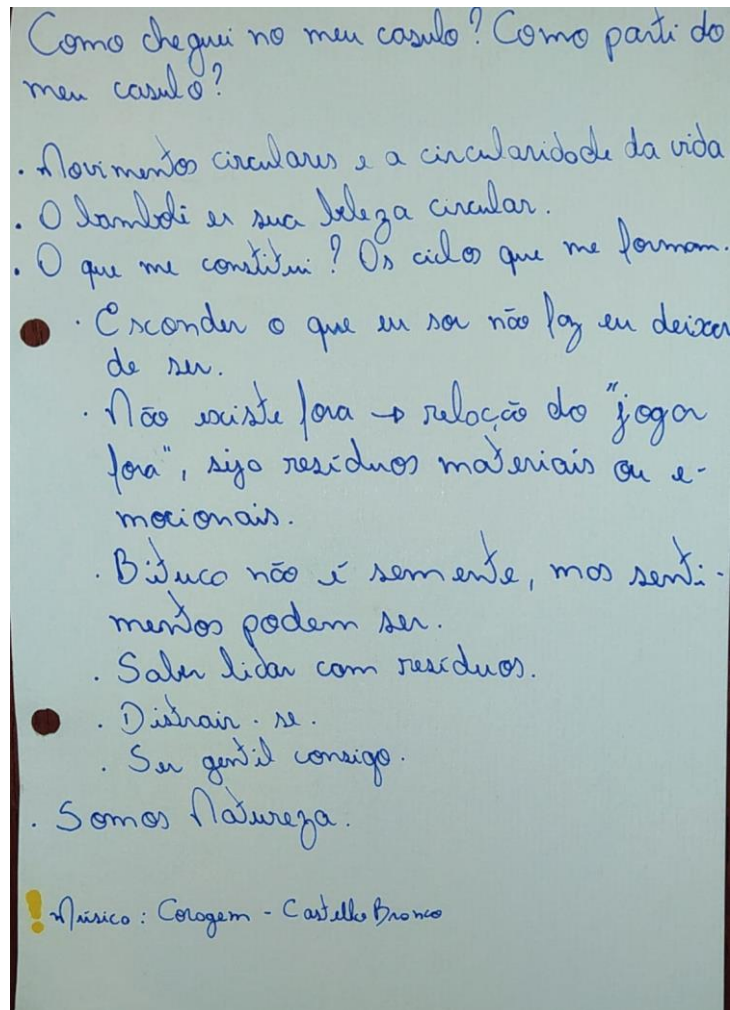 Como cheguei no meu casulo? Como parti do
meu casulo?
. Movimentos circulares e a circularidade da vida
. O bambolê e sua beleza circular.
. O que me constitui? Os ciclos que me formam.
. Esconder o que eu sou não faz eu deixar
de ser.
. Não existe fora → relação do "jogar
fora", sejo resíduos materiais ou e-
mocionais.
. Bituca não é semente, mas senti-
mentos podem ser.
. Saber lidar com resíduos.
. Distrair-se.
. Ser gentil consigo.
. Somos Natureza.
! Música: Coragem - Castello Branco